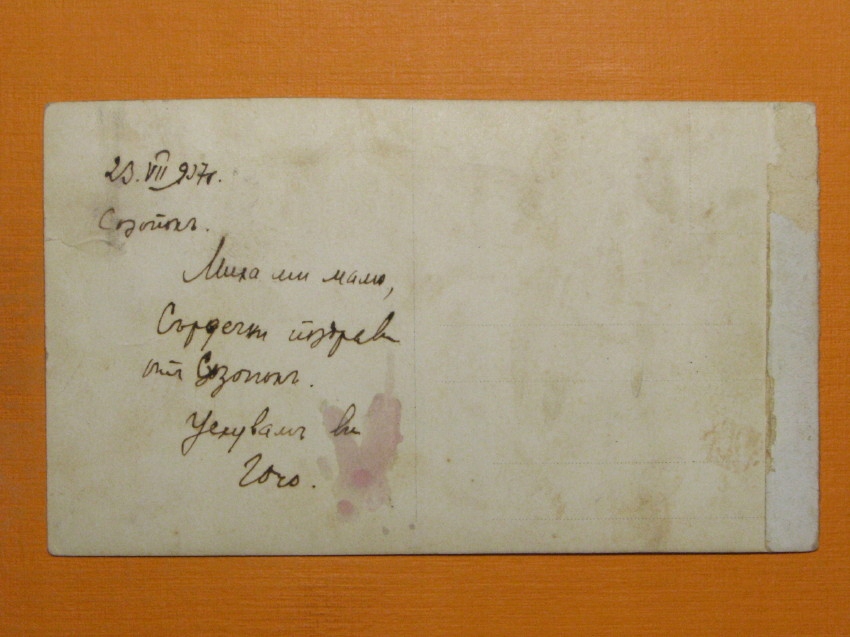 23.VII 937г.
Созополъ.
Мила ми мамо,
Сърдечни поздрави
отъ Созополъ.
Целувамъ ви
Гочо.